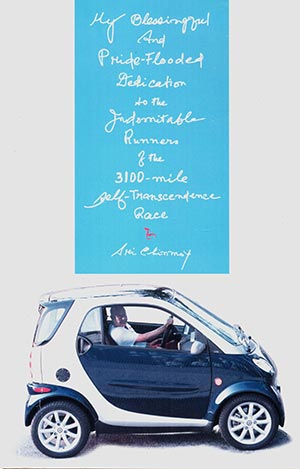 My Blessingful
And
Pride-Flooded
Dedication
to the
Indomitable
Runners
of the
3100-mile
Self-Transcendence
Race
Sri Chinmoy